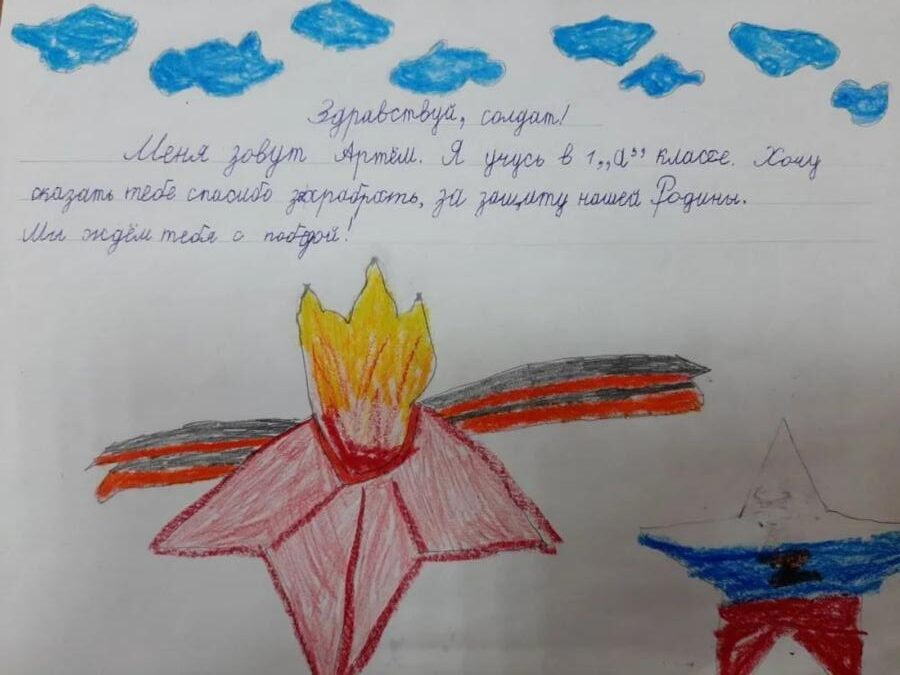 Здравствуй, солдат!
Меня зовут Артём. Я учусь в 1 „а” классе. Хочу
сказать тебе спасибо за храбрость, за защиту нашей Родины.
Мы ждём тебя с победой!
Z